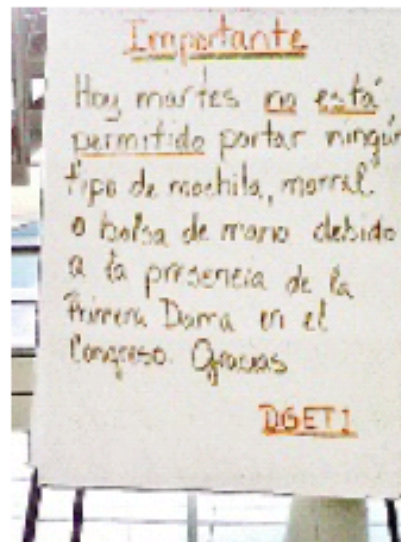 Importante
Hoy martes no está
permitido portar ningún
tipo de mochila, morral
o bolsa de mano debido
a la presencia de la
Primera Dama en el
Congreso. Gracias
DGETI